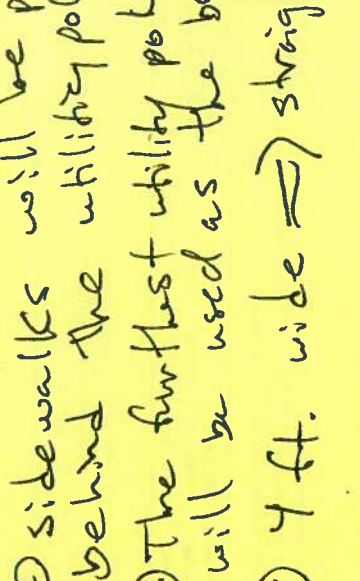 sidewalks will be p
behind the utility po
The furthest utility po
will be used as the b
4 ft. wide => straig